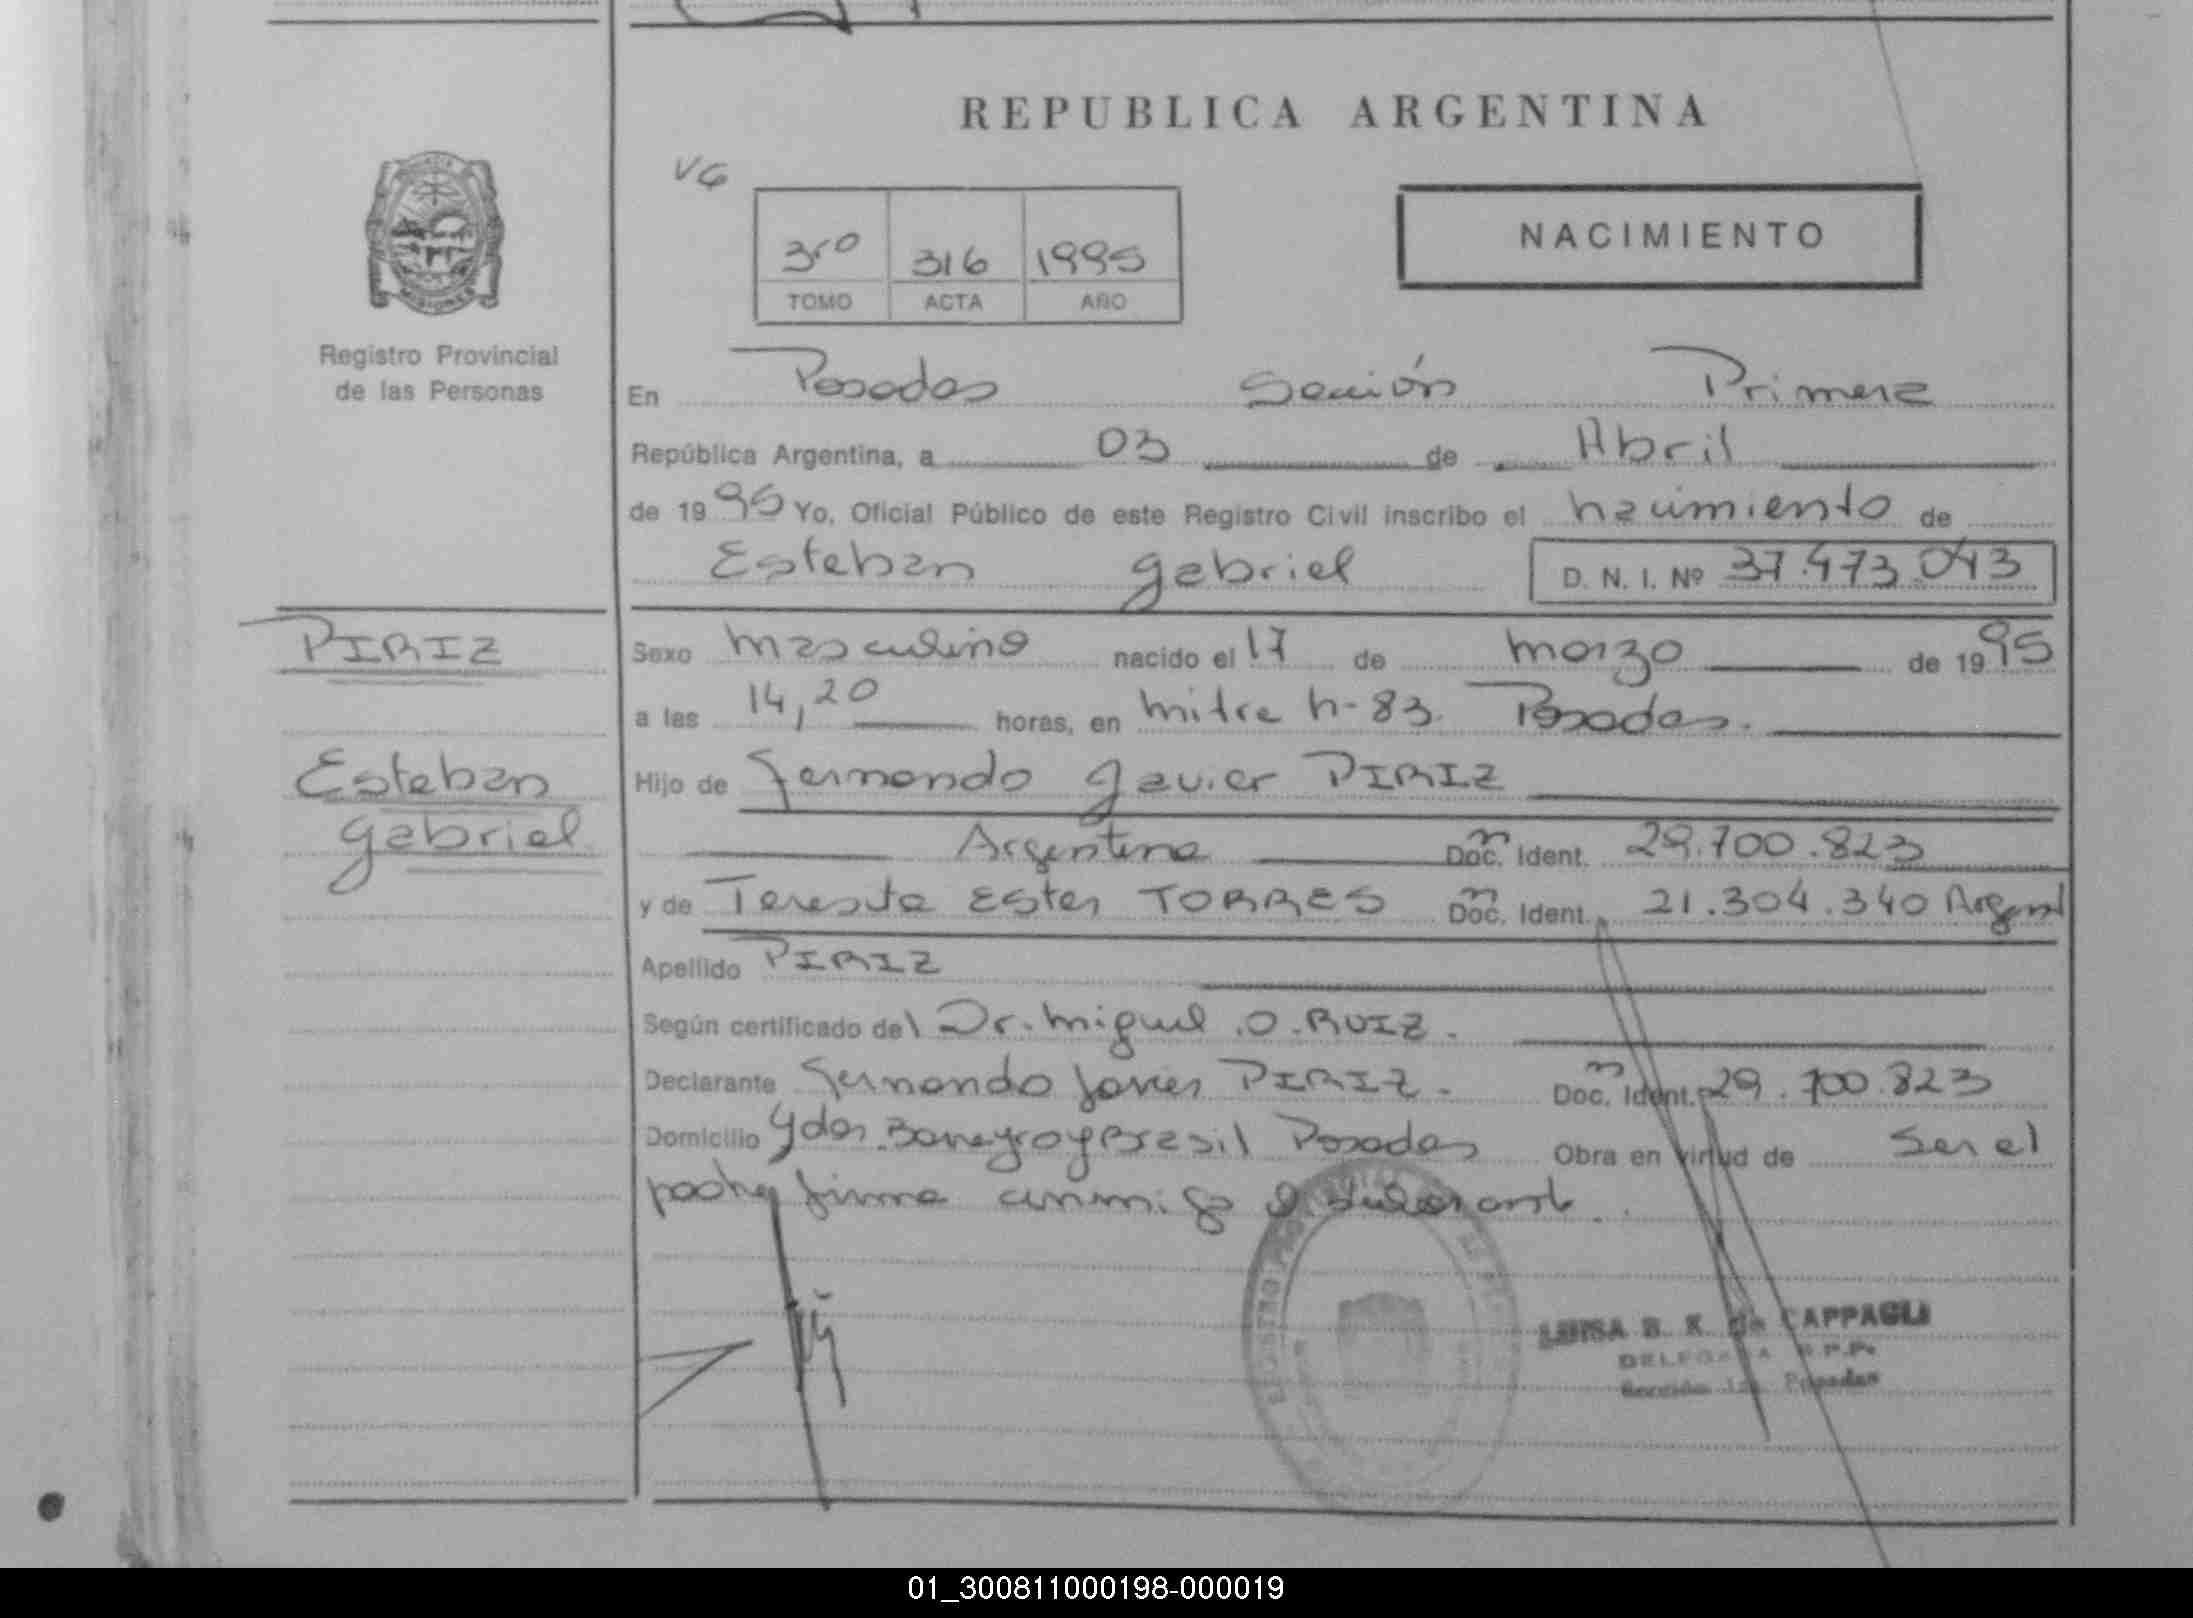 REPUBLICA ARGENTINA
VG
3ro 316 1995
TOMO ACTA AÑO
NACIMIENTO
MISIONES
Registro Provincial
de las Personas
En Posadas Sección Primera
República Argentina, a 03 de Abril
de 1995 Yo, Oficial Público de este Registro Civil inscribo el nacimiento de
Esteban Gabriel D. N. I. Nº 37.473.043
PIRIZ
Esteban
Gabriel
Sexo masculino nacido el 17 de marzo de 1995
a las 14,20 horas, en mitre n-83. Posadas.
Hijo de Fernando Javier PIRIZ
Argentina Doc. Ident. 29.700.823
y de Teresita Ester TORRES Doc. Ident. 21.304.340 Argent
Apellido PIRIZ
Según certificado del Dr. Miguel .O. RUIZ.
Declarante Fernando Javier PIRIZ. Doc. Ident. 29.700.823
Domicilio y Brasil Posadas Obra en virtud de Ser el
padre firma conmigo el declarante.
LUISA B. K. de CAPPAGLI
DELEGADA R.P.P.
Sección 1ra. Posadas
01_300811000198-000019